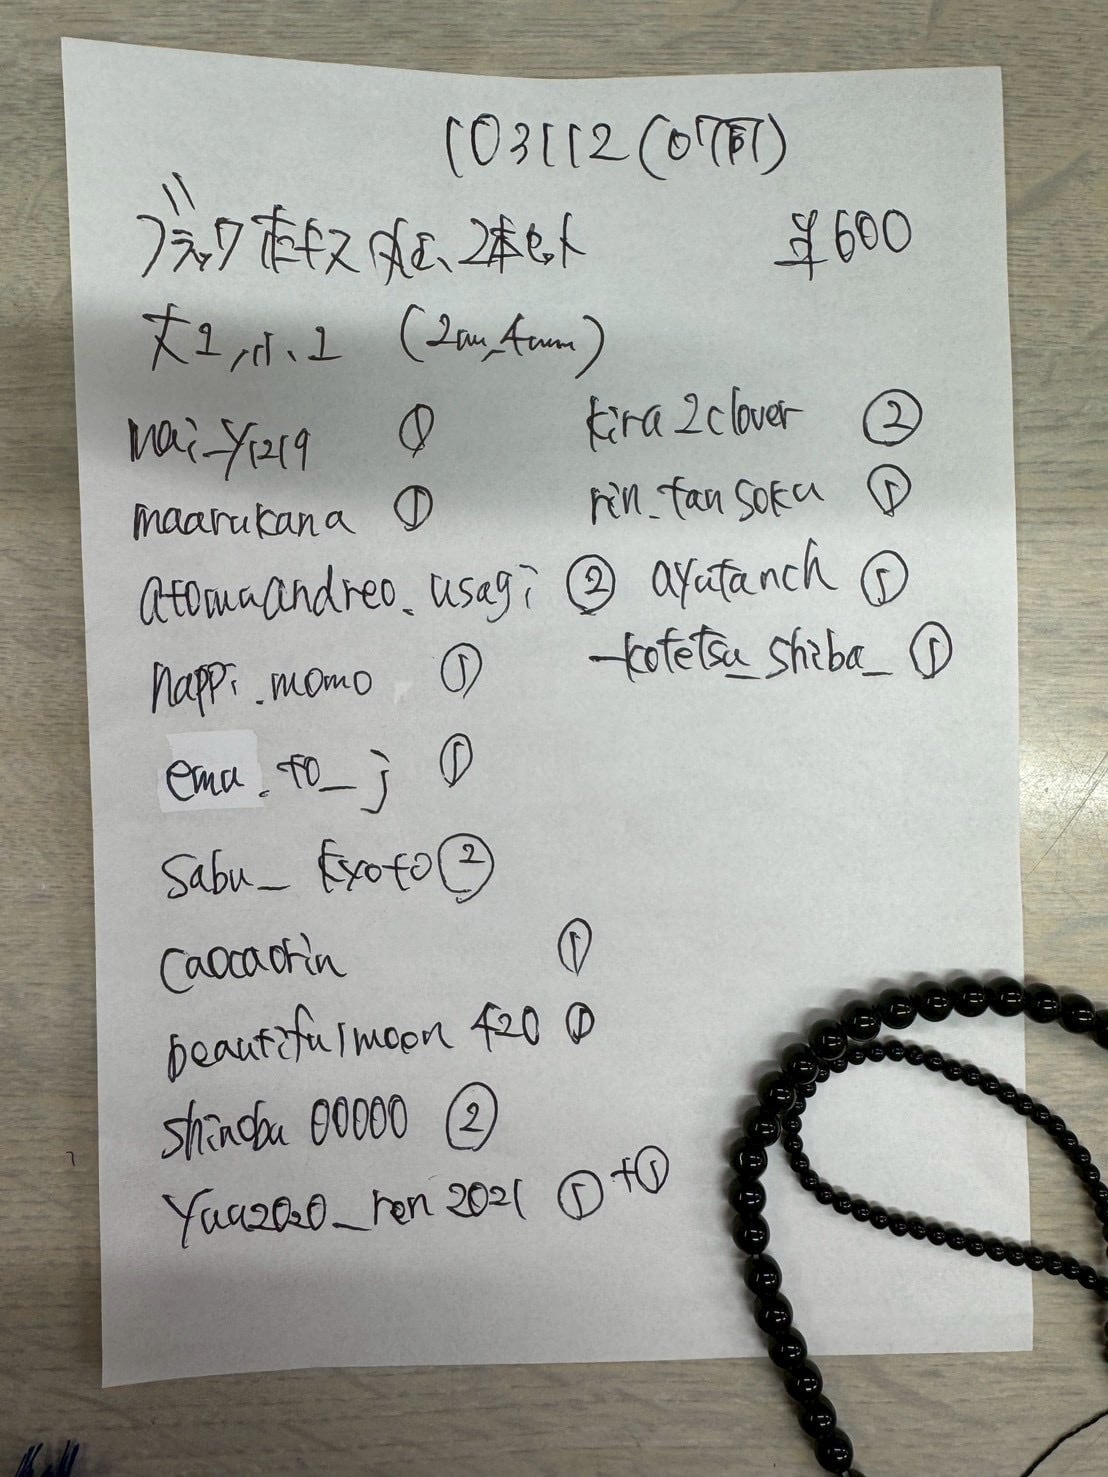 103112
¥600
大1,小、1
mai_y1219 ①
maarukana ①
atomuandreo.usagi ②
nappi.momo ①
emu.to_j ①
sabu_kyoto ②
caocaorin ①
beautifulmoon420 ①
shinobu00000 ②
yuu2020_ren2021 ①+①
kira2clover ②
rin_tansoku ①
ayutanch ①
_kotetsu_shiba_ ①